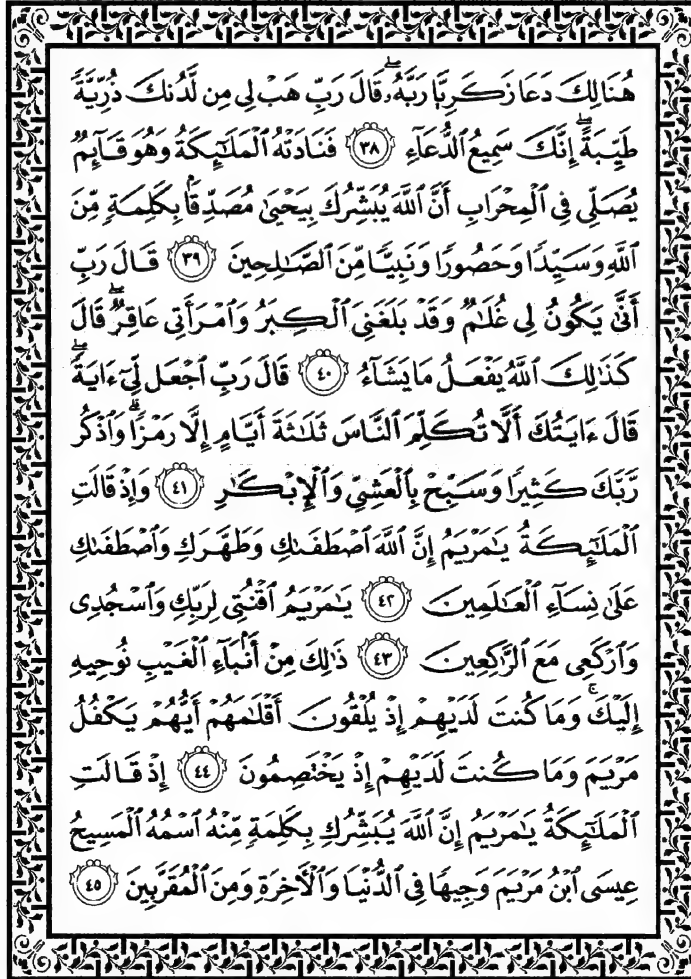 هُنَالِكَ دَعَا زَكَرِيَّا رَبَّهُۥۖ قَالَ رَبِّ هَبْ لِى مِن لَّدُنكَ ذُرِّيَّةً
طَيِّبَةًۖ إِنَّكَ سَمِيعُ ٱلدُّعَآءِ ٣٨ فَنَادَتْهُ ٱلْمَلَـٰٓئِكَةُ وَهُوَ قَآئِمٌ
يُصَلِّى فِى ٱلْمِحْرَابِ أَنَّ ٱللَّهَ يُبَشِّرُكَ بِيَحْيَىٰ مُصَدِّقًۢا بِكَلِمَةٍ مِّنَ
ٱللَّهِ وَسَيِّدًا وَحَصُورًا وَنَبِيًّا مِّنَ ٱلصَّـٰلِحِينَ ٣٩ قَالَ رَبِّ
أَنَّىٰ يَكُونُ لِى غُلَـٰمٌ وَقَدْ بَلَغَنِىَ ٱلْكِبَرُ وَٱمْرَأَتِى عَاقِرٌۖ قَالَ
كَذَٰلِكَ ٱللَّهُ يَفْعَلُ مَا يَشَآءُ ٤٠ قَالَ رَبِّ ٱجْعَل لِّىٓ ءَايَةًۖ
قَالَ ءَايَتُكَ أَلَّا تُكَلِّمَ ٱلنَّاسَ ثَلَـٰثَةَ أَيَّامٍ إِلَّا رَمْزًاۗ وَٱذْكُر
رَّبَّكَ كَثِيرًا وَسَبِّحْ بِٱلْعَشِىِّ وَٱلْإِبْكَـٰرِ ٤١ وَإِذْ قَالَتِ
ٱلْمَلَـٰٓئِكَةُ يَـٰمَرْيَمُ إِنَّ ٱللَّهَ ٱصْطَفَىٰكِ وَطَهَّرَكِ وَٱصْطَفَىٰكِ
عَلَىٰ نِسَآءِ ٱلْعَـٰلَمِينَ ٤٢ يَـٰمَرْيَمُ ٱقْنُتِى لِرَبِّكِ وَٱسْجُدِى
وَٱرْكَعِى مَعَ ٱلرَّٰكِعِينَ ٤٣ ذَٰلِكَ مِنْ أَنۢبَآءِ ٱلْغَيْبِ نُوحِيهِ
إِلَيْكَۚ وَمَا كُنتَ لَدَيْهِمْ إِذْ يُلْقُونَ أَقْلَـٰمَهُمْ أَيُّهُمْ يَكْفُلُ
مَرْيَمَ وَمَا كُنتَ لَدَيْهِمْ إِذْ يَخْتَصِمُونَ ٤٤ إِذْ قَالَتِ
ٱلْمَلَـٰٓئِكَةُ يَـٰمَرْيَمُ إِنَّ ٱللَّهَ يُبَشِّرُكِ بِكَلِمَةٍ مِّنْهُ ٱسْمُهُ ٱلْمَسِيحُ
عِيسَى ٱبْنُ مَرْيَمَ وَجِيهًا فِى ٱلدُّنْيَا وَٱلْـَٔاخِرَةِ وَمِنَ ٱلْمُقَرَّبِينَ ٤٥